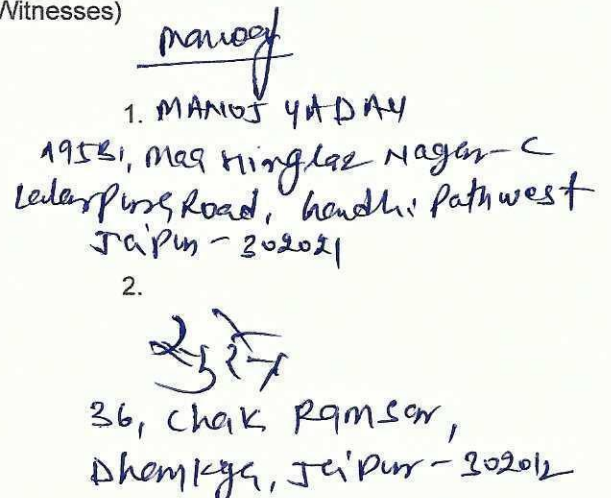 Witnesses)
Manoj
1. MANOJ YADAV
A95B1, Maa Hinglaz Nagar-C
Lalarpura Road, Gandhi Path west
Jaipur - 302021
2.
36, Chak Ramsar,
Dhamkya, Jaipur - 302012